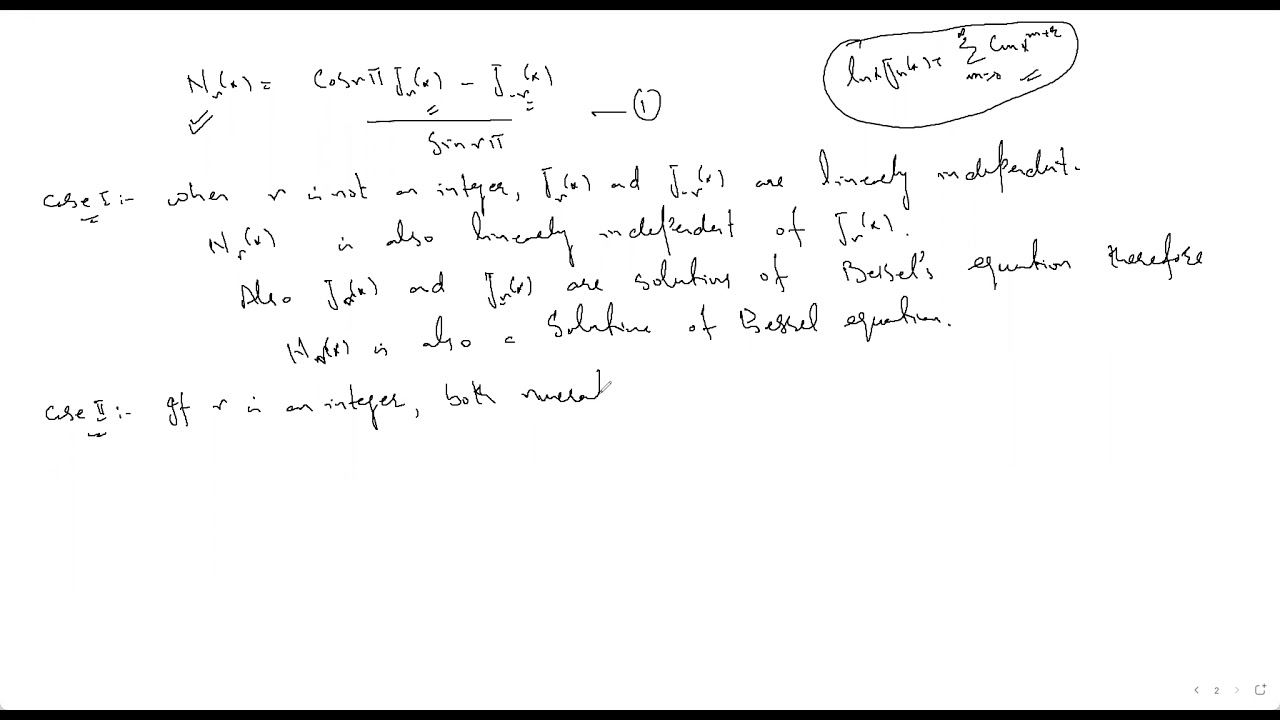 N_r(x) = Cosrπ J_r(x) - J_-r(x) / Sinrπ — ①
lnx J_n(x) + ∞∑m=0 Cm x^m+r
case I :- when r is not an integer, J_r(x) and J_-r(x) are linearly independent.
N_r(x) is also linearly independent of J_r(x).
Also J_r(x) and J_-r(x) are solutions of Bessel's equation therefore
N_r(x) is also a Solution of Bessel equation.
case II :- If r is an integer, both numerat
2